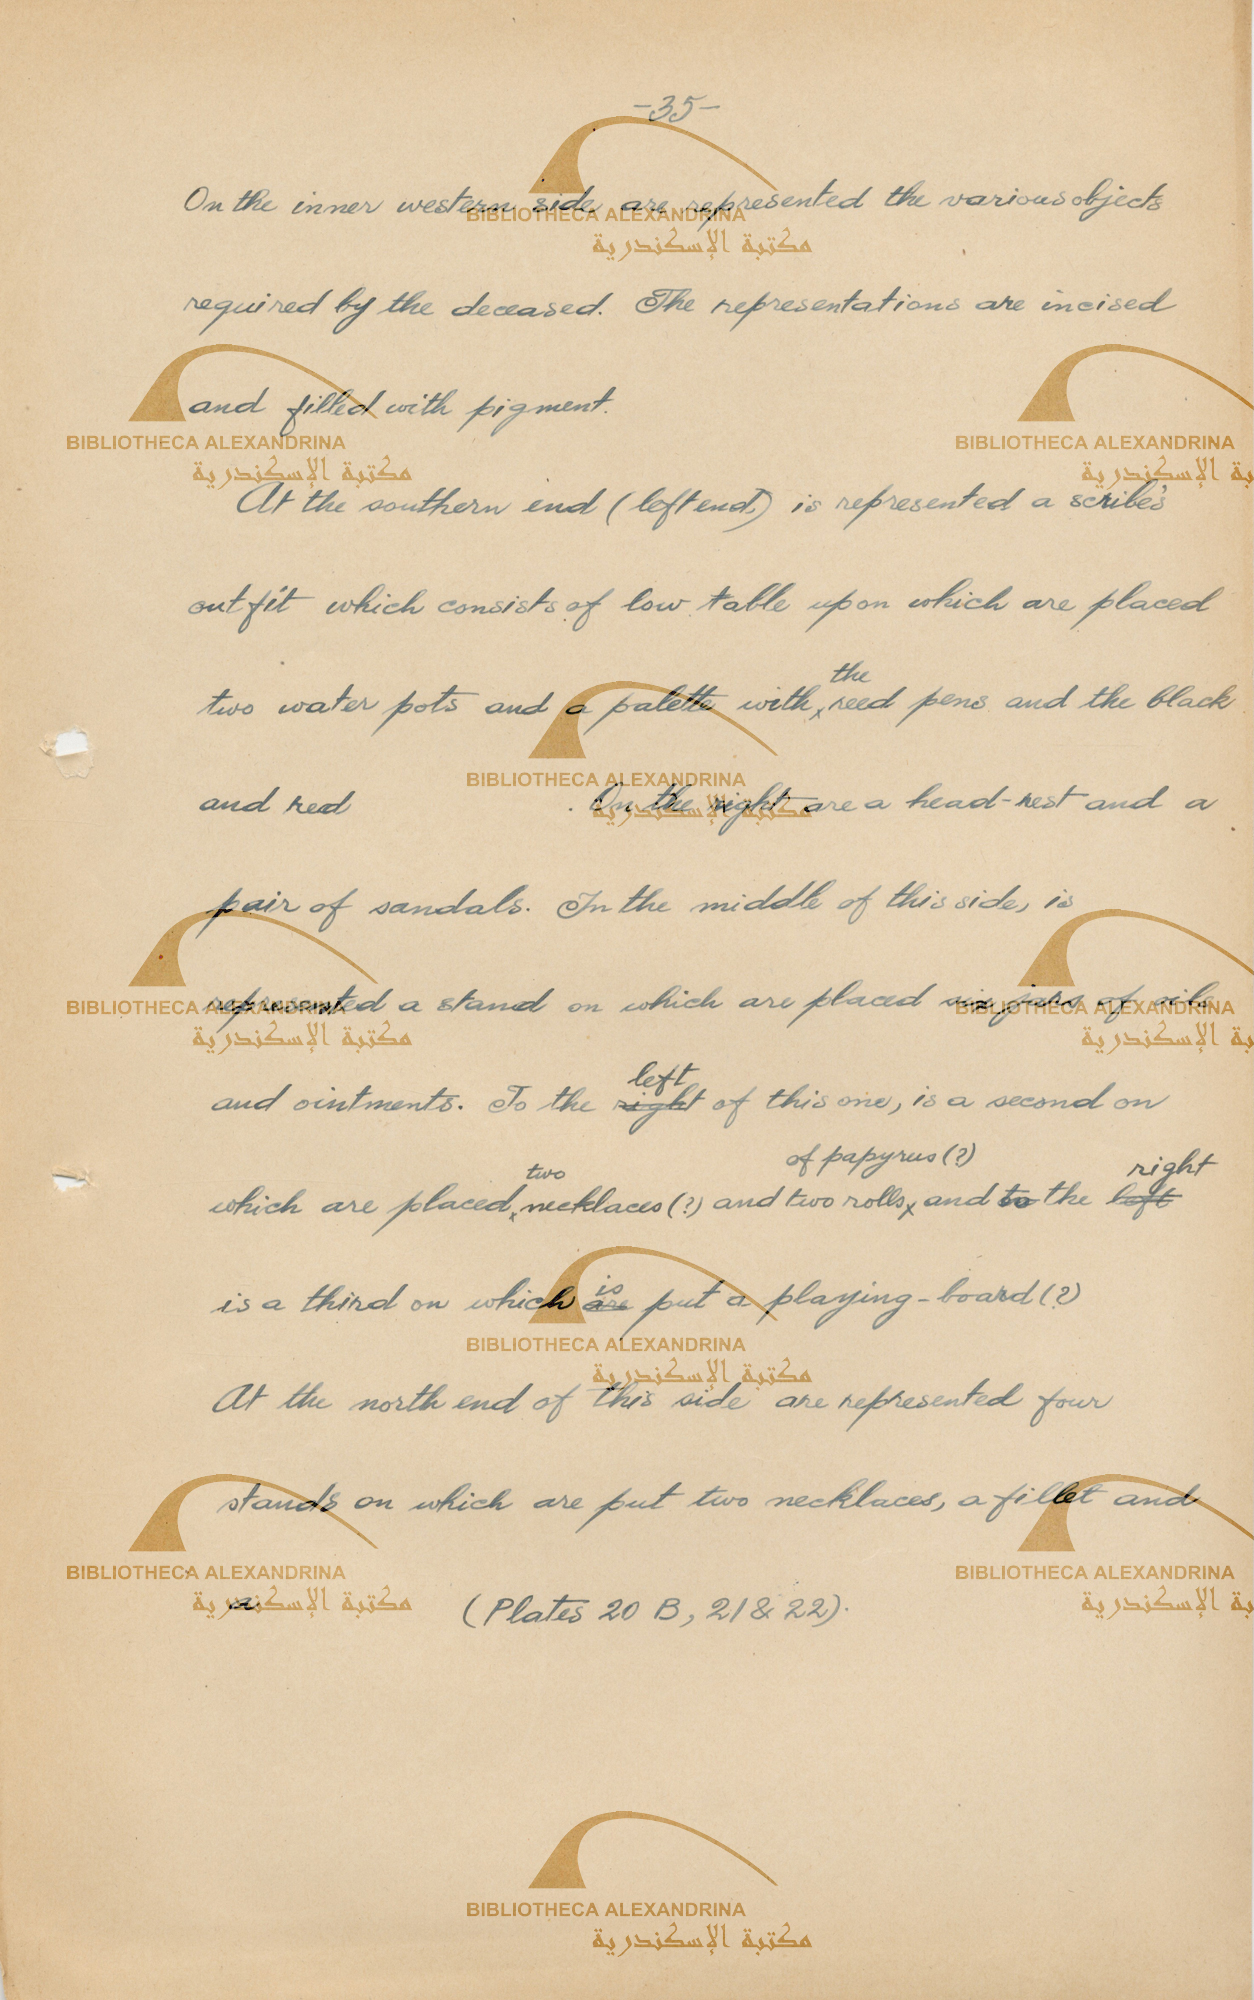 -35-
On the inner western side, are represented the various objects
required by the deceased. The representations are incised
and filled with pigment.
At the southern end (left end) is represented a scribe's
outfit which consists of low table upon which are placed
the
two water pots and a palette with reed pens and the black
and red . On the right are a head-rest and a
pair of sandals. In the middle of this side, is
represented a stand on which are placed six jars of oils
left
and ointments. To the right of this one, is a second on
two of papyrus (?) right
which are placed, necklaces (?) and two rolls, and to the left
is
is a third on which are put a playing-board (?)
At the north end of this side are represented four
stands on which are put two necklaces, a fillet and
a (Plates 20 B, 21 & 22).
BIBLIOTHECA ALEXANDRINA
مكتبة الإسكندرية